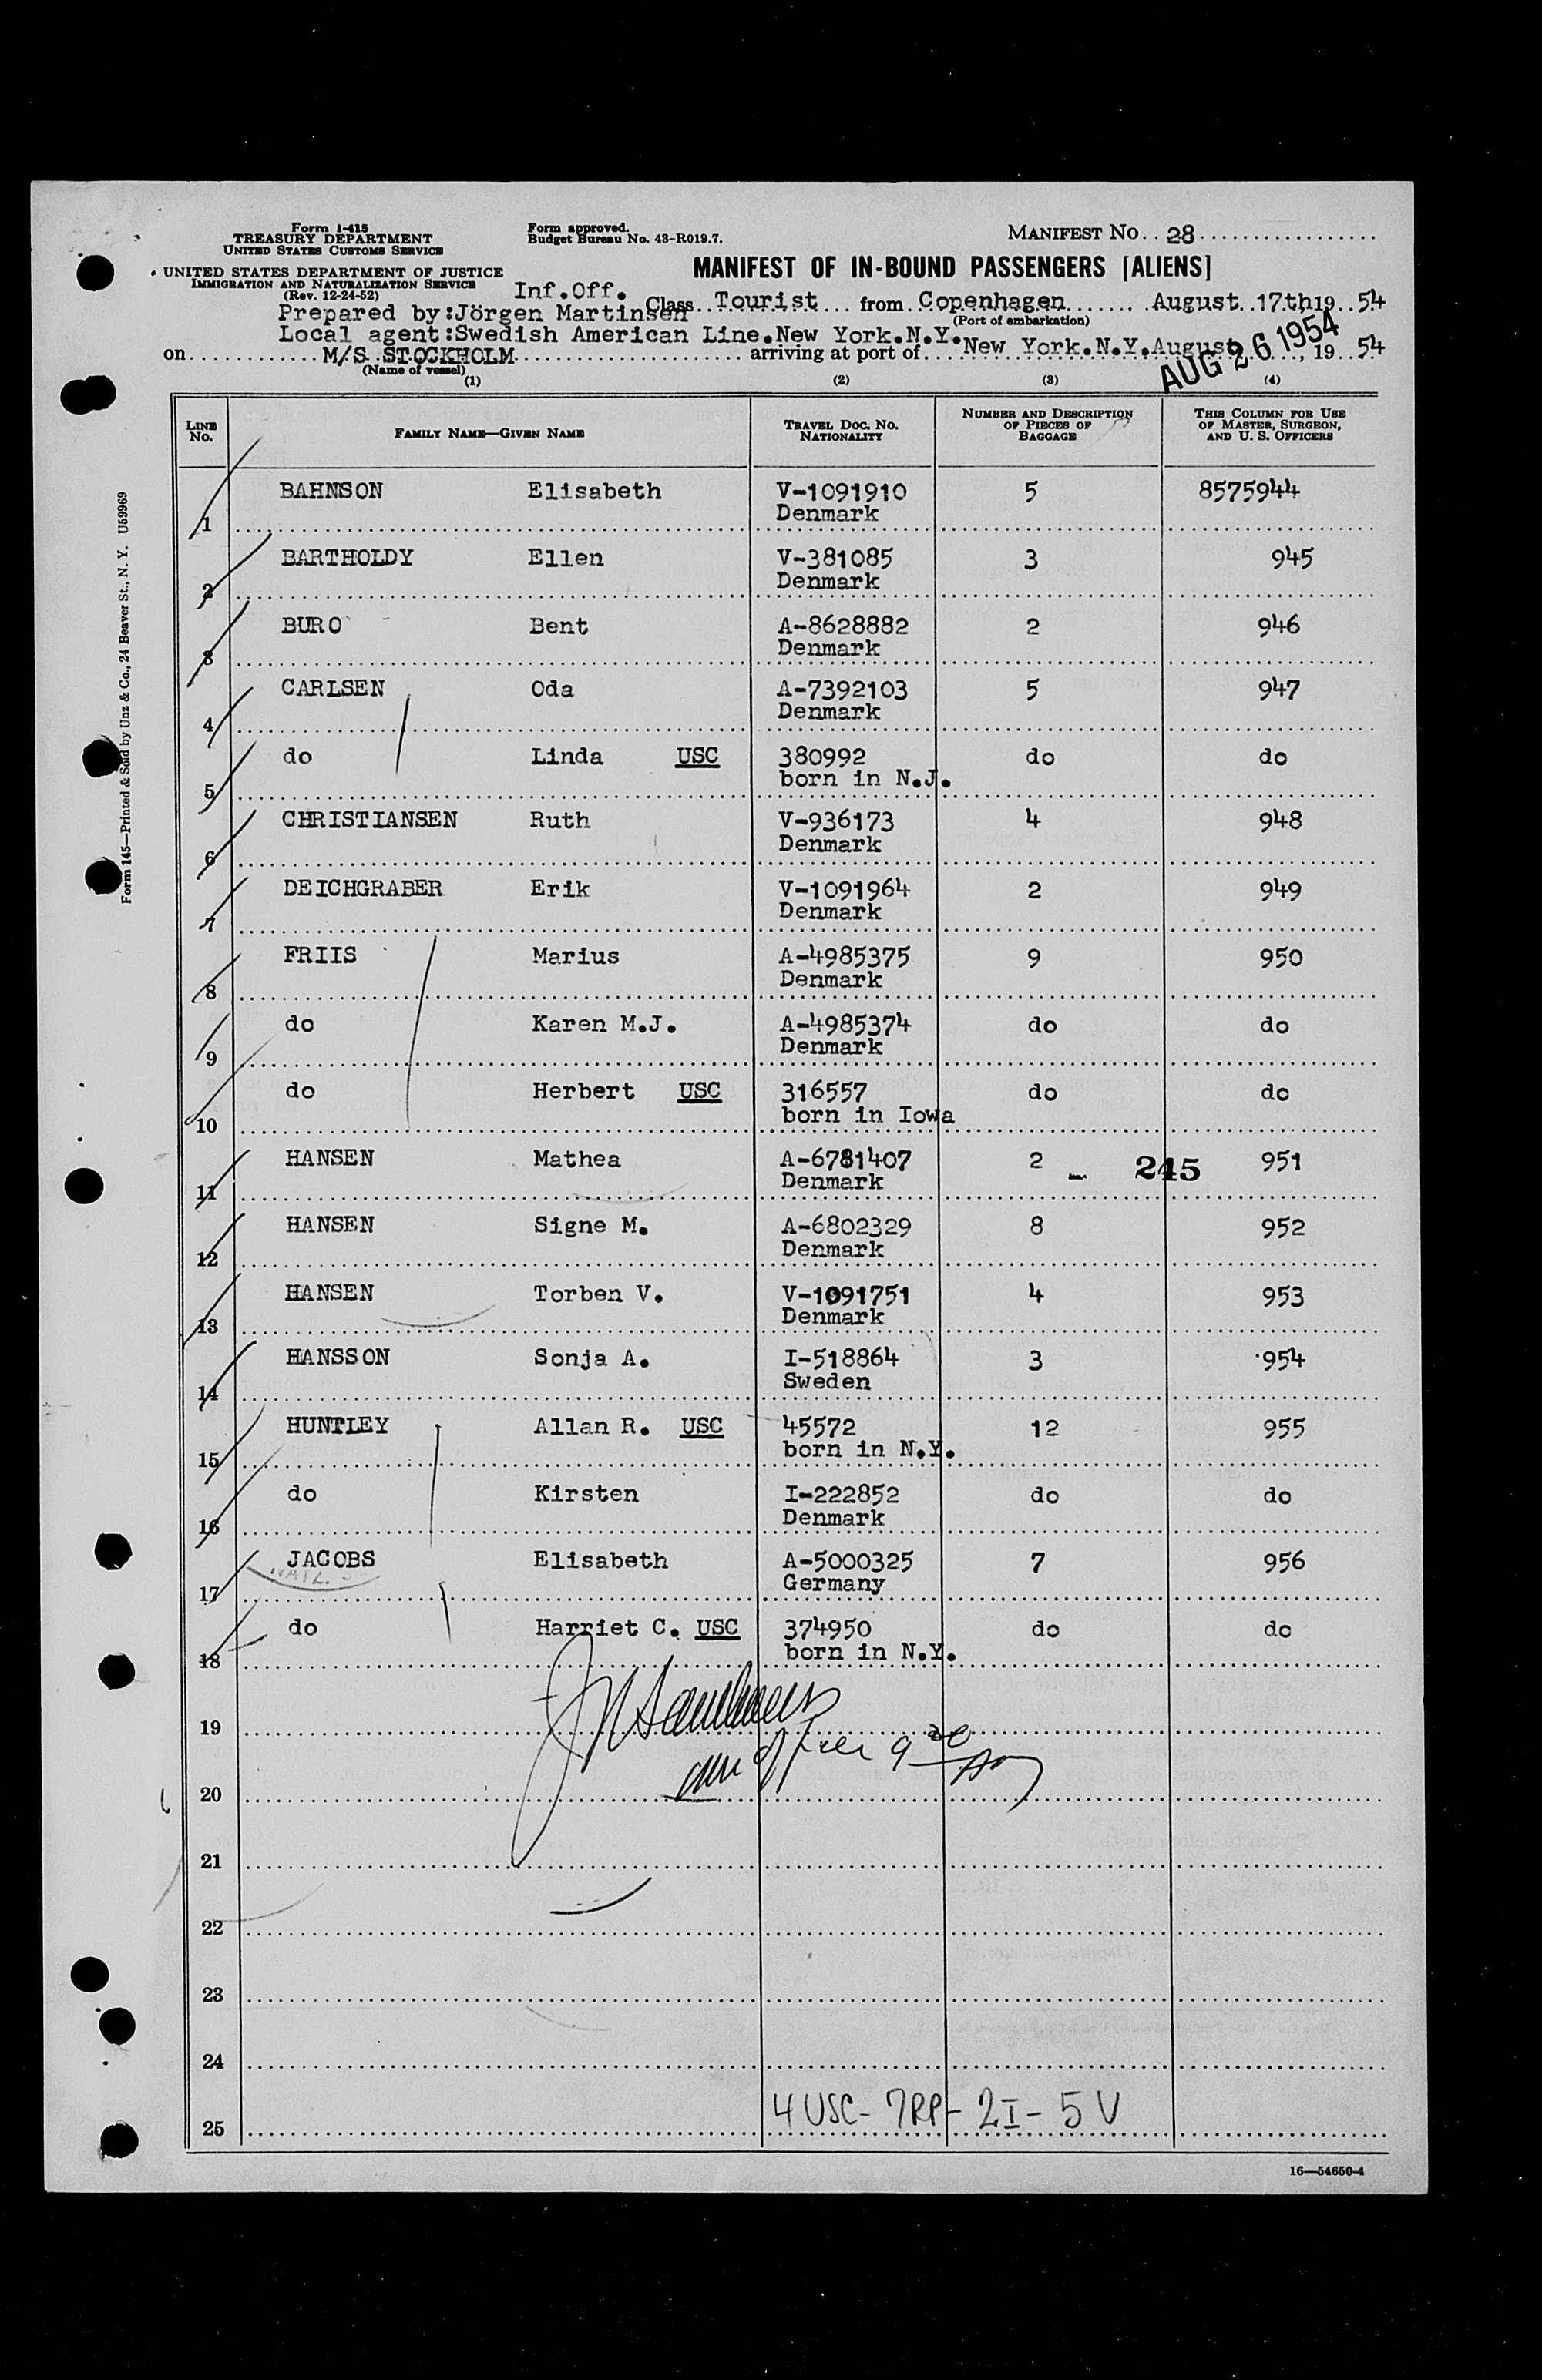 Form I-415
TREASURY DEPARTMENT
UNITED STATES CUSTOMS SERVICE
Form approved.
Budget Bureau No. 43-R019.7.
MANIFEST NO. 28
UNITED STATES DEPARTMENT OF JUSTICE
IMMIGRATION AND NATURALIZATION SERVICE
(Rev. 12-24-52)
MANIFEST OF IN-BOUND PASSENGERS [ALIENS]
Inf.Off.
Prepared by:Jörgen Martinsen Class Tourist from Copenhagen, August 17th 19 54
(Port of embarkation)
Local agent:Swedish American Line.New York.N.Y.
on M/S STOCKHOLM arriving at port of New York.N.Y.August, 19 54
(Name of vessel)
AUG 26 1954
(1) (2) (3) (4)
LINE NO. FAMILY NAME—GIVEN NAME TRAVEL DOC. NO. NATIONALITY NUMBER AND DESCRIPTION OF PIECES OF BAGGAGE THIS COLUMN FOR USE OF MASTER, SURGEON, AND U. S. OFFICERS
1 BAHNSON Elisabeth V-1091910 5 8575944
Denmark
2 BARTHOLDY Ellen V-381085 3 945
Denmark
3 BURO Bent A-8628882 2 946
Denmark
4 CARLSEN Oda A-7392103 5 947
Denmark
5 do Linda USC 380992 do do
born in N.J.
6 CHRISTIANSEN Ruth V-936173 4 948
Denmark
7 DEICHGRABER Erik V-1091964 2 949
Denmark
8 FRIIS Marius A-4985375 9 950
Denmark
9 do Karen M.J. A-4985374 do do
Denmark
10 do Herbert USC 316557 do do
born in Iowa
11 HANSEN Mathea A-6781407 2 245 951
Denmark
12 HANSEN Signe M. A-6802329 8 952
Denmark
13 HANSEN Torben V. V-1091751 4 953
Denmark
14 HANSSON Sonja A. I-518864 3 954
Sweden
15 HUNTLEY Allan R. USC 45572 12 955
born in N.Y.
16 do Kirsten I-222852 do do
Denmark
17 JACOBS Elisabeth A-5000325 7 956
Germany
18 do Harriet C. USC 374950 do do
born in N.Y.
19
20
21
22
23
24
25
4 USC - 7RP - 2I - 5V
16—54650-4
Form 145—Printed & Sold by Unz & Co., 24 Beaver St., N. Y. U59969